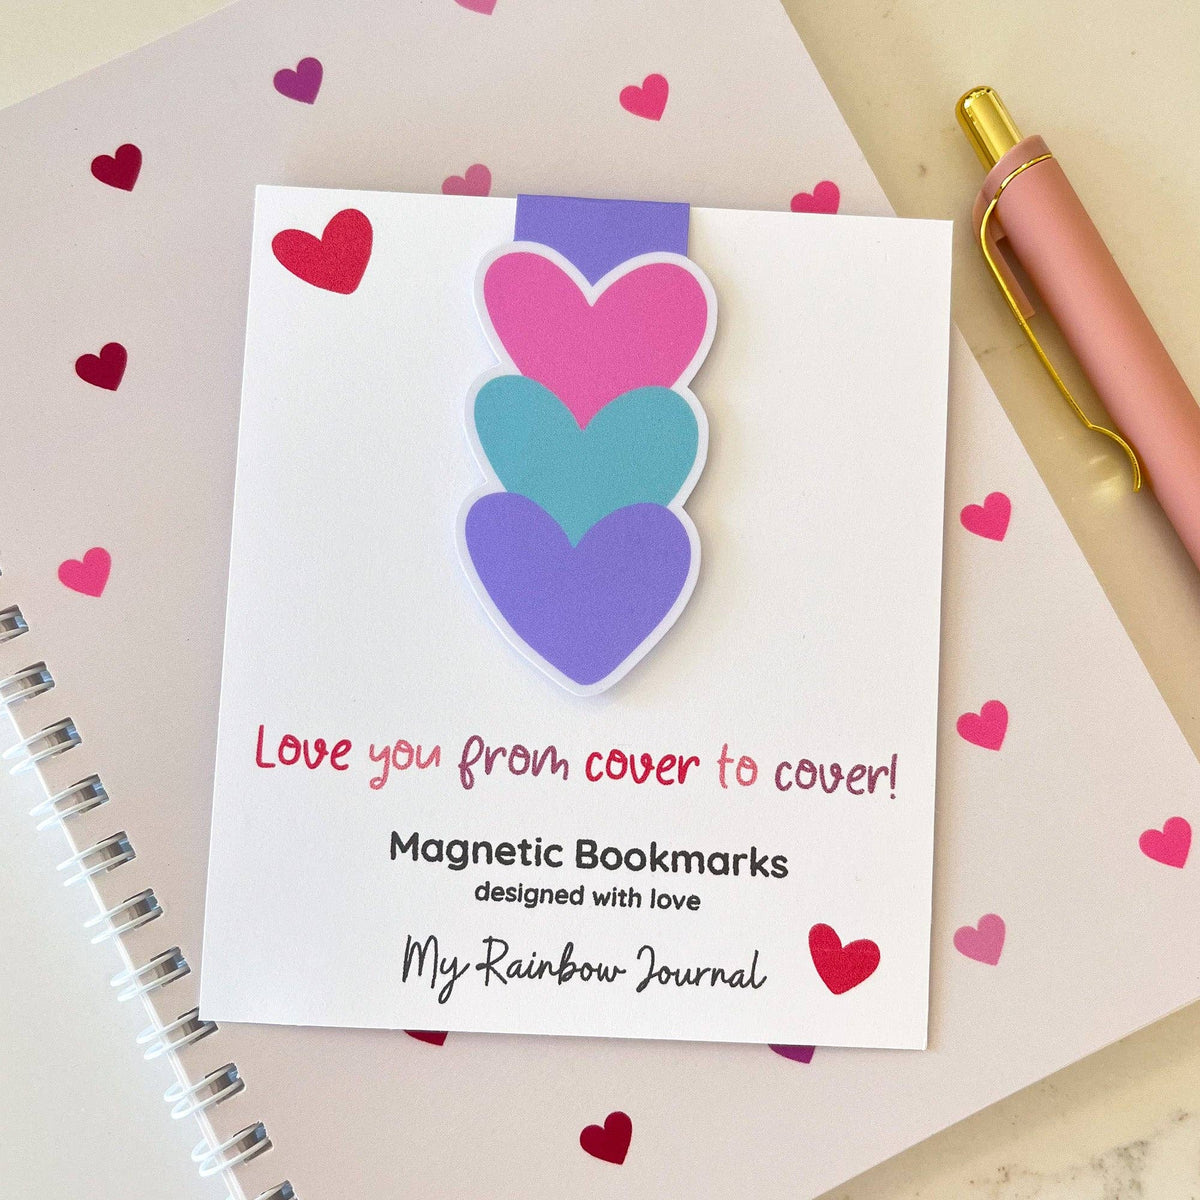 Love you from cover to cover!
Magnetic Bookmarks
designed with love
My Rainbow Journal